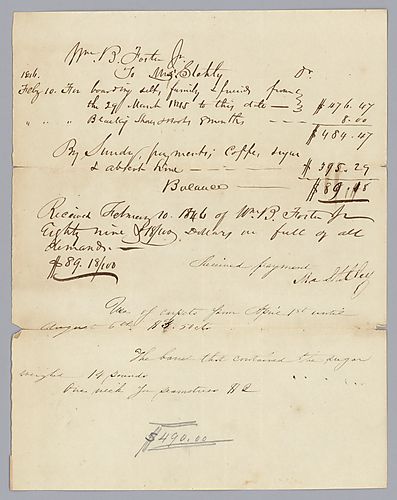 Wm. B. Foster Jr.
1846. To Mrs. Blakly Dr.
Feby 10. For boarding self, family & friends from
the 29 March 1845 to this date — $476.47
" " " Blacking Shoes & boots 8 months — 8.00
$484.47
By Sundry payments; Coffee, sugar
& absent time — $395.29
Balance — $89.18
Received February 10. 1846 of Wm. B. Foster Jr
Eighty nine & 18/100 Dollars in full of all
demands. —
$89. 18/100
Received payment
Use of carpets from April 1st until
August 6th $3.50cts
The barrel that contained the sugar
weighed 14 pounds
One week for seamstress $2
$490.00